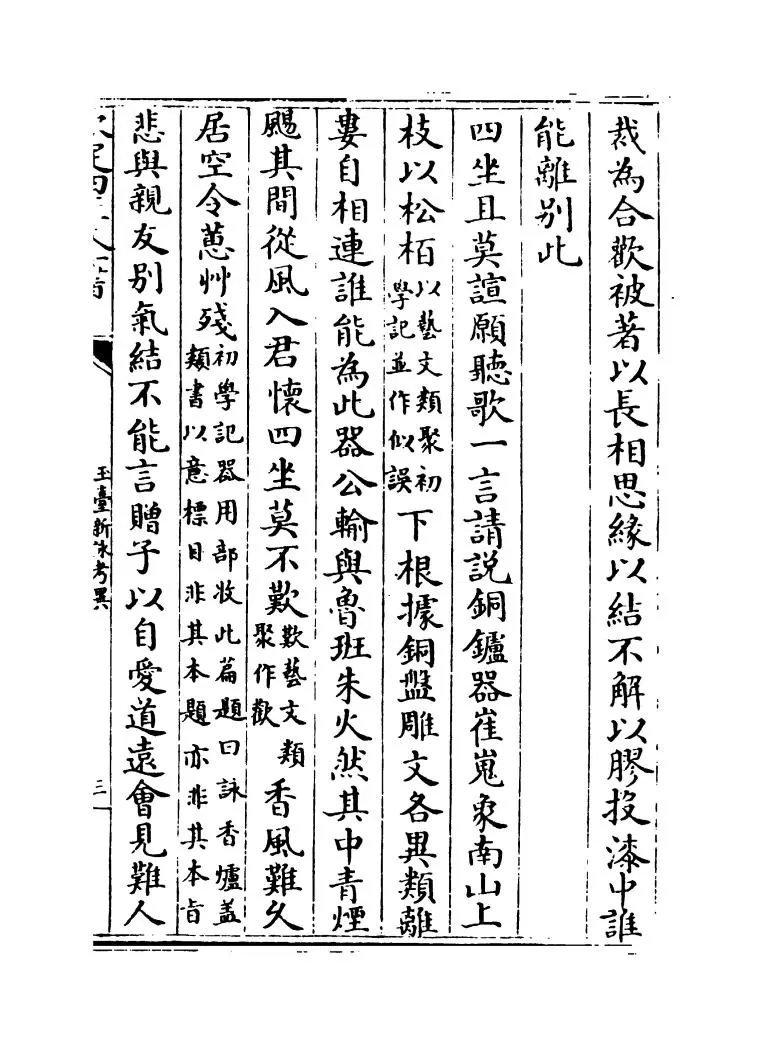 裁為合歡被著以長相思緣以結不解以膠投漆中誰
能離别此
四坐且莫諠願聽歌一言請説銅鑪器崔嵬象南山上
枝以松栢以藝文類聚初學記並作似誤下根據銅盤雕文各異類離
婁自相連誰能為此器公輸與魯班朱火然其中青煙
颺其間從風入君懷四坐莫不歎歎藝文類聚作歡香風難久
居空令蕙艸殘初學記器用部收此篇題曰詠香爐盖類書以意標目非其本題亦非其本旨
悲與親友别氣結不能言贈子以自愛道遠會見難人
玉臺新詠考異
三